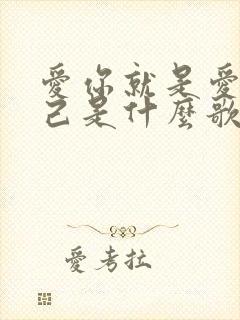 愛你就是愛
己是什麼歌
愛考拉